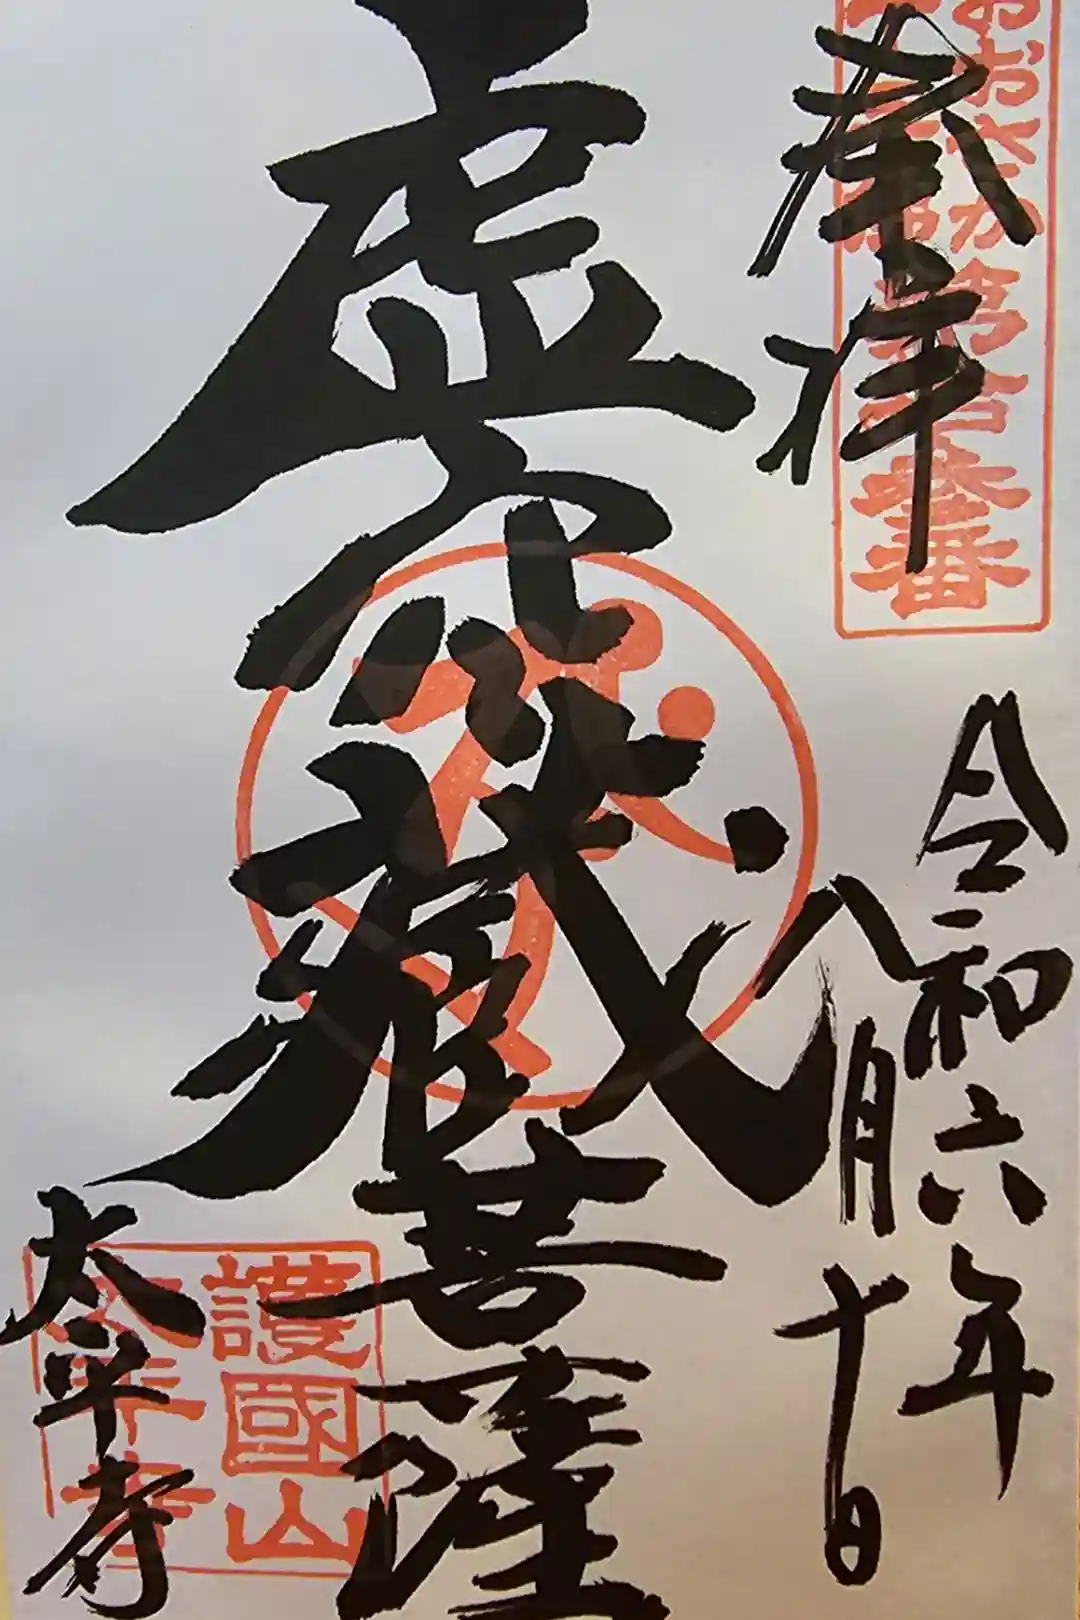 奉拝
おおさか
第壱番
令和六年
八月十日
虚空蔵菩薩
護國山
太平寺
太平寺